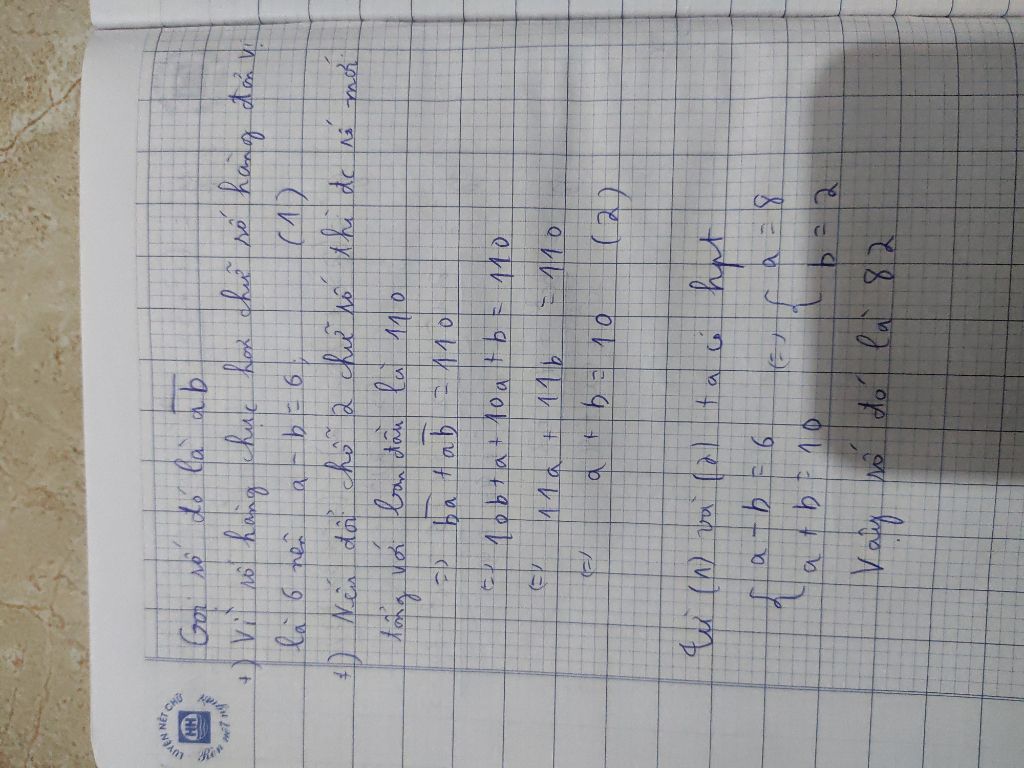 LUYỆN NÉT CHỮ
HH
Rèn nết người
Gọi số đó là ab
+) Vì số hàng chục hơn chữ số hàng đơn vị
là 6 nên a - b = 6 (1)
+) Nếu đổi chỗ 2 chữ số thì đc số mới
tổng với ban đầu là 110
=> ba + ab = 110
<=> 10b + a + 10a + b = 110
<=> 11a + 11b = 110
<=> a + b = 10 (2)
Từ (1) và (2) ta có hpt
{ a - b = 6 <=> { a = 8
{ a + b = 10 { b = 2
Vậy số đó là 82